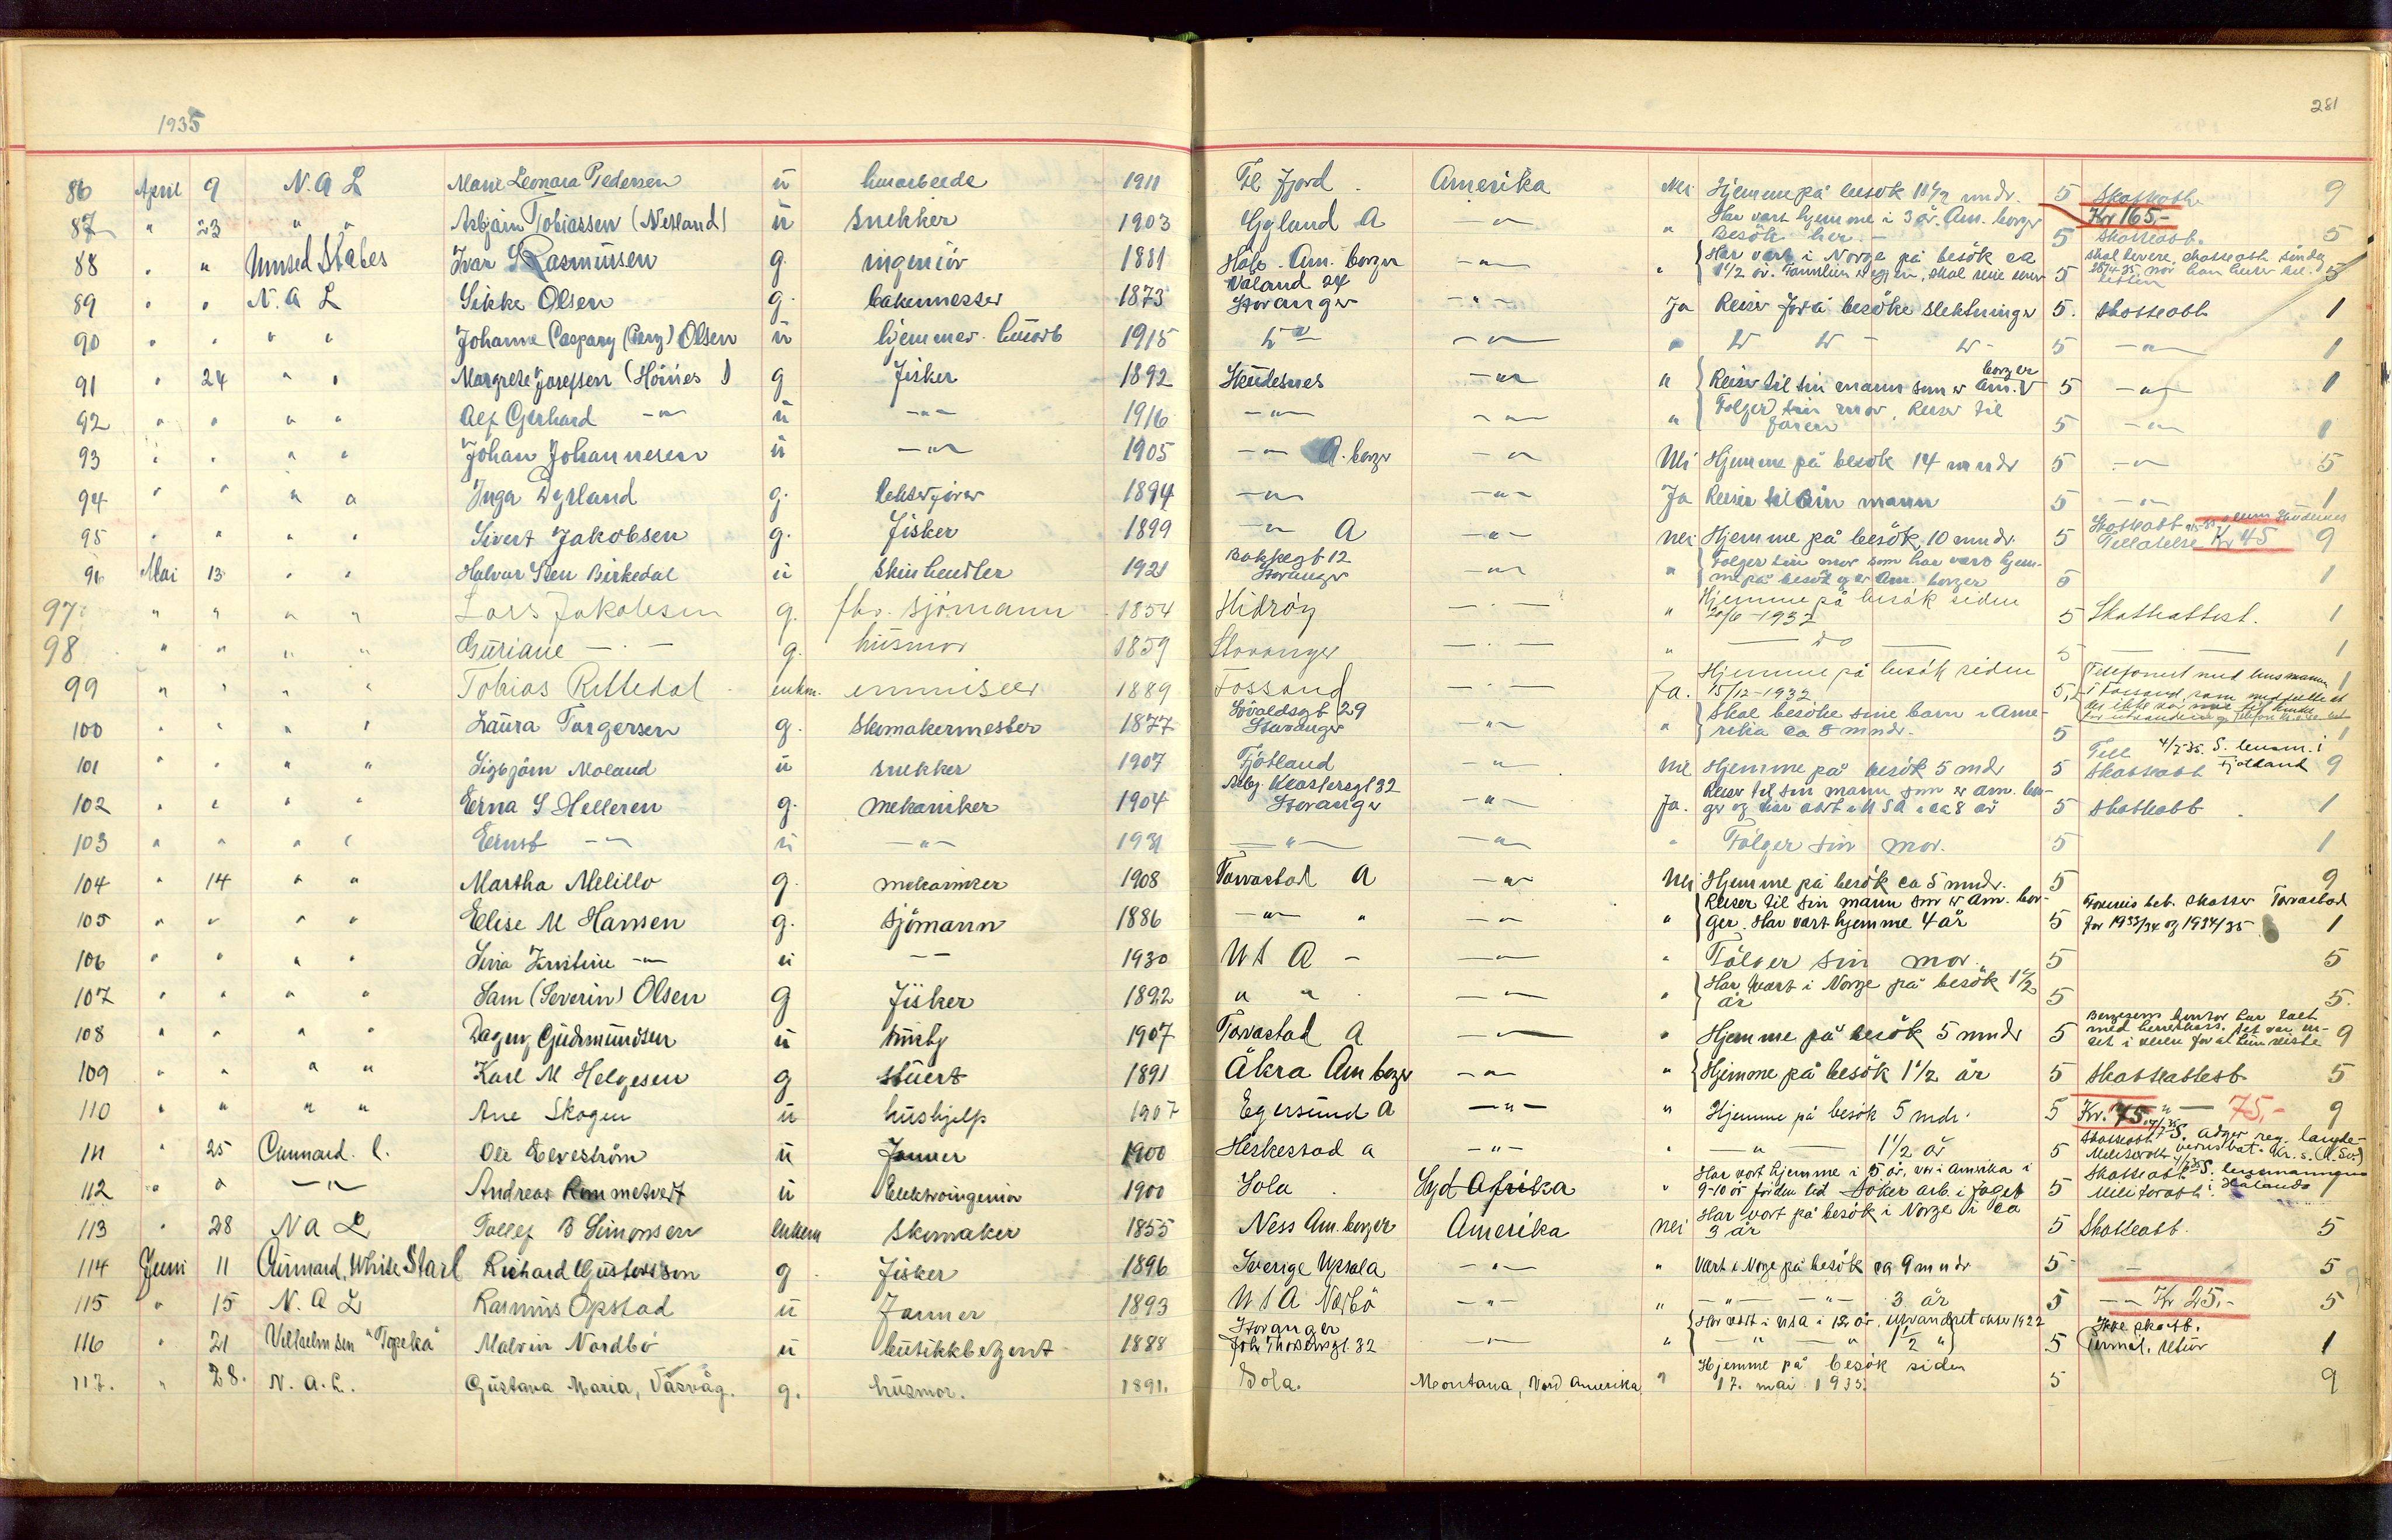 1935
281
86 April 9 N. A L Marie Leonara Pedersen ü husarbeide 1911 Fl. Fjord Amerika Nei Hjemme på besøk 11 1/2 mndr. 5 Skatteatt. 9
87 " 23 " " Asbjørn Tobiassen (Netland) ü Snekker 1903 Gyland A —"— " Har vært hjemme i 3 år. Am. borger Besøk her. — 5 Kr 165,- Skatteatt. 5
88 " " United States Ivar S Rasmussen g. ingeniør 1881 Am. borger Våland 24 —"— " Har vært i Norge på besøk ca 1 1/2 år. 5 skal levere skatteatt 5
89 " " N. A L Sikke Olsen g. bakermester 1873 Stavanger —"— Ja Reiser for å besøke slektninger 5. skatteatt 1
90 " " " " Johanne Caspary Olsen ü hjemmev. husarb 1915 —"— —"— " — 5 —"— 1
91 " 24 " " Margrete Josefsen (Hømes) g Fisker 1892 Skudesnes —"— " Reiser til sin mann som er Am. borger 5 —"— 1
92 " " " " Alf Gerhard —"— ü —"— 1916 —"— —"— " Følger sin mor, Reiser til faren 5 —"— 1
93 " " " " Johan Johannesen ü —"— 1905 —"— A. borger —"— Nei Hjemme på besøk 14 mndr 5 —"— 5
94 " " " " Inga Dyrland g. 1894 —"— —"— Ja Reiser til sin mann 5 —"— 1
95 " " " " Sivert Jakobsen g. Fisker 1899 —"— A —"— Nei Hjemme på besøk 10 mndr. 5 Skatteatt Tillatelse Kr 45 9
96 Mai 13 " " Halvar Sten Birkedal ü Skinhendler 1921 Bakkegt 12 Stavanger —"— " Følger sin mor som har vært hjemme på besøk og er Am. borger 5 1
97. " " " " Lars Jakobsen g. fhv. sjømann 1854 Hidrøy —"— " Hjemme på besøk siden 20/6-1932 5 Skatteattest. 1
98 " " " " Guriane —"— g. husmor 1859 Stavanger —"— " — do — 5 — 1
99 " " " " Tobias Rettedal enkm. 1889 Fossand —"— Ja. Hjemme på besøk siden 15/12-1932 5 Telefonert med lensmannen i Fossand, som meddelte at 1
100 " " " " Laura Torgersen g. Skomakermester 1877 Løvaldsgt 29 Stavanger —"— " Skal besøke sine barn i Amerika ca 8 mndr. 5 1
101 " " " " Sigbjørn Moland ü snekker 1907 Fjotland —"— Nei Hjemme på besøk 5 mdr 5 Till 4/7-35 S. lensm. i Fjotland Skatteatt 9
102 " " " " Erna S Helleren g. mekaniker 1904 Klostergt 32 Stavanger —"— Ja. Reiser til sin mann som er Am. borger og har vært i USA i ca 8 år 5 skatteatt 1
103 " " " " Ernst —"— ü —"— 1931 —"— —"— " Følger sin mor. 5 1
104 " 14 " " Martha Melillo g. mekaniker 1908 Torvastad A —"— Nei Hjemme på besøk ca 5 mndr. 5 9
105 " " " " Elise M Hansen g. Sjømann 1886 —"— " —"— " Reiser til sin mann som er Am. borger. Har vært hjemme 4 år 5 bet. skatter Torvastad for 1933/34 og 1934/35 1
106 " " " " Kristine —"— ü —"— 1930 U S A —"— " Følger sin mor. 5 5
107 " " " " Sam (Severin) Olsen g fisker 1892 " " —"— " Har vært i Norge på besøk 1 1/2 år 5 5.
108 " " " " Dagny Gudmundsen ü 1907 Torvastad A —"— " Hjemme på besøk 5 mndr 5 Bergesens kontor har talt med 9
109 " " " " Karl M Helgesen g stuert 1891 Åkra Am borger —"— " Hjemme på besøk 1 1/2 år 5 skatteattest 5
110 " " " " Ane Skogen ü hushjelp 1907 Egersund A —"— " Hjemme på besøk 5 mdr. 5 Kr. 75 —"— 75,- 9
111 " 25 Cunnard. l. Ole Elveström ü Farmer 1900 Heskestad a —"— " —"— 1 1/2 år 5 Skatteatt
112 " " —"— Andreas Rommetvedt ü Elektroingeniør 1900 Sola Syd Afrika " Har vært hjemme i 5 år, var i Amerika i 9-10 år før den tid Søker arb. i faget 5 Skatteatt S. lensmannen Militæratt i Håland 1
113 " 28 N A L Tollef B Simonsen enkem Skomaker 1855 Ness Am. borger Amerika Nei Har vært på besøk i Norge i ca 3 år 5 Skatteatt. 5
114 Juni 11 Cunnard, White Starl Richard Gustavsson g. Fisker 1896 Sverige Upsala —"— " Vært i Norge på besøk ca 9 mndr 5 — 5
115 " 15 N. A L Rasmus Opstad ü Farmer 1893 U S A Nærbø —"— " —"— —"— 3 år 5 —"— Kr 25,- 5
116 " 21 Vilhelmsen "Topeka" Malvin Nordbø ü butikkbetjent 1888 Stavanger Joh. Thorsensgt. 32 —"— " Har vært i USA i 12 år, utvandret 1922 —"— —"— 1 1/2 " 5 Ikke skatt. 1
117. " 28. N. A. L. Gustava Maria, Våsvåg. g. husmor. 1891. Sola. Montana, Nord Amerika " Hjemme på besøk siden 17. mai 1933. 5 9